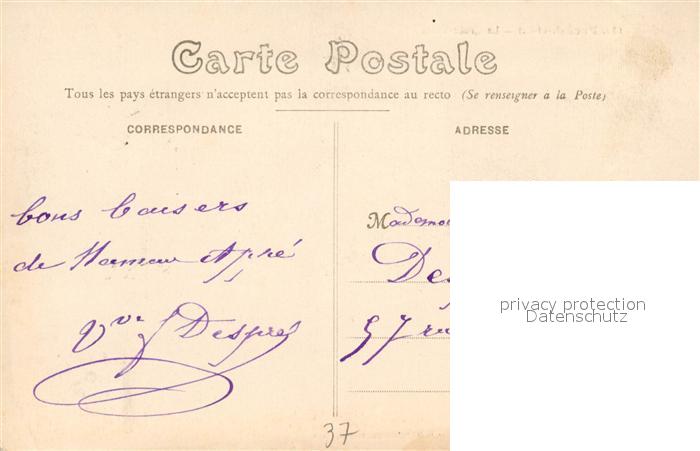 Carte Postale
Tous les pays étrangers n'acceptent pas la correspondance au recto (Se renseigner a la Poste)
CORRESPONDANCE
ADRESSE
bons baisers
de
Vve Despres
Mademoi
Des
57 rue
privacy protection
Datenschutz
37